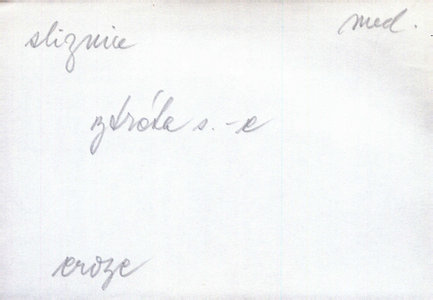 sliznice med.
ztráta s. -e
eroze